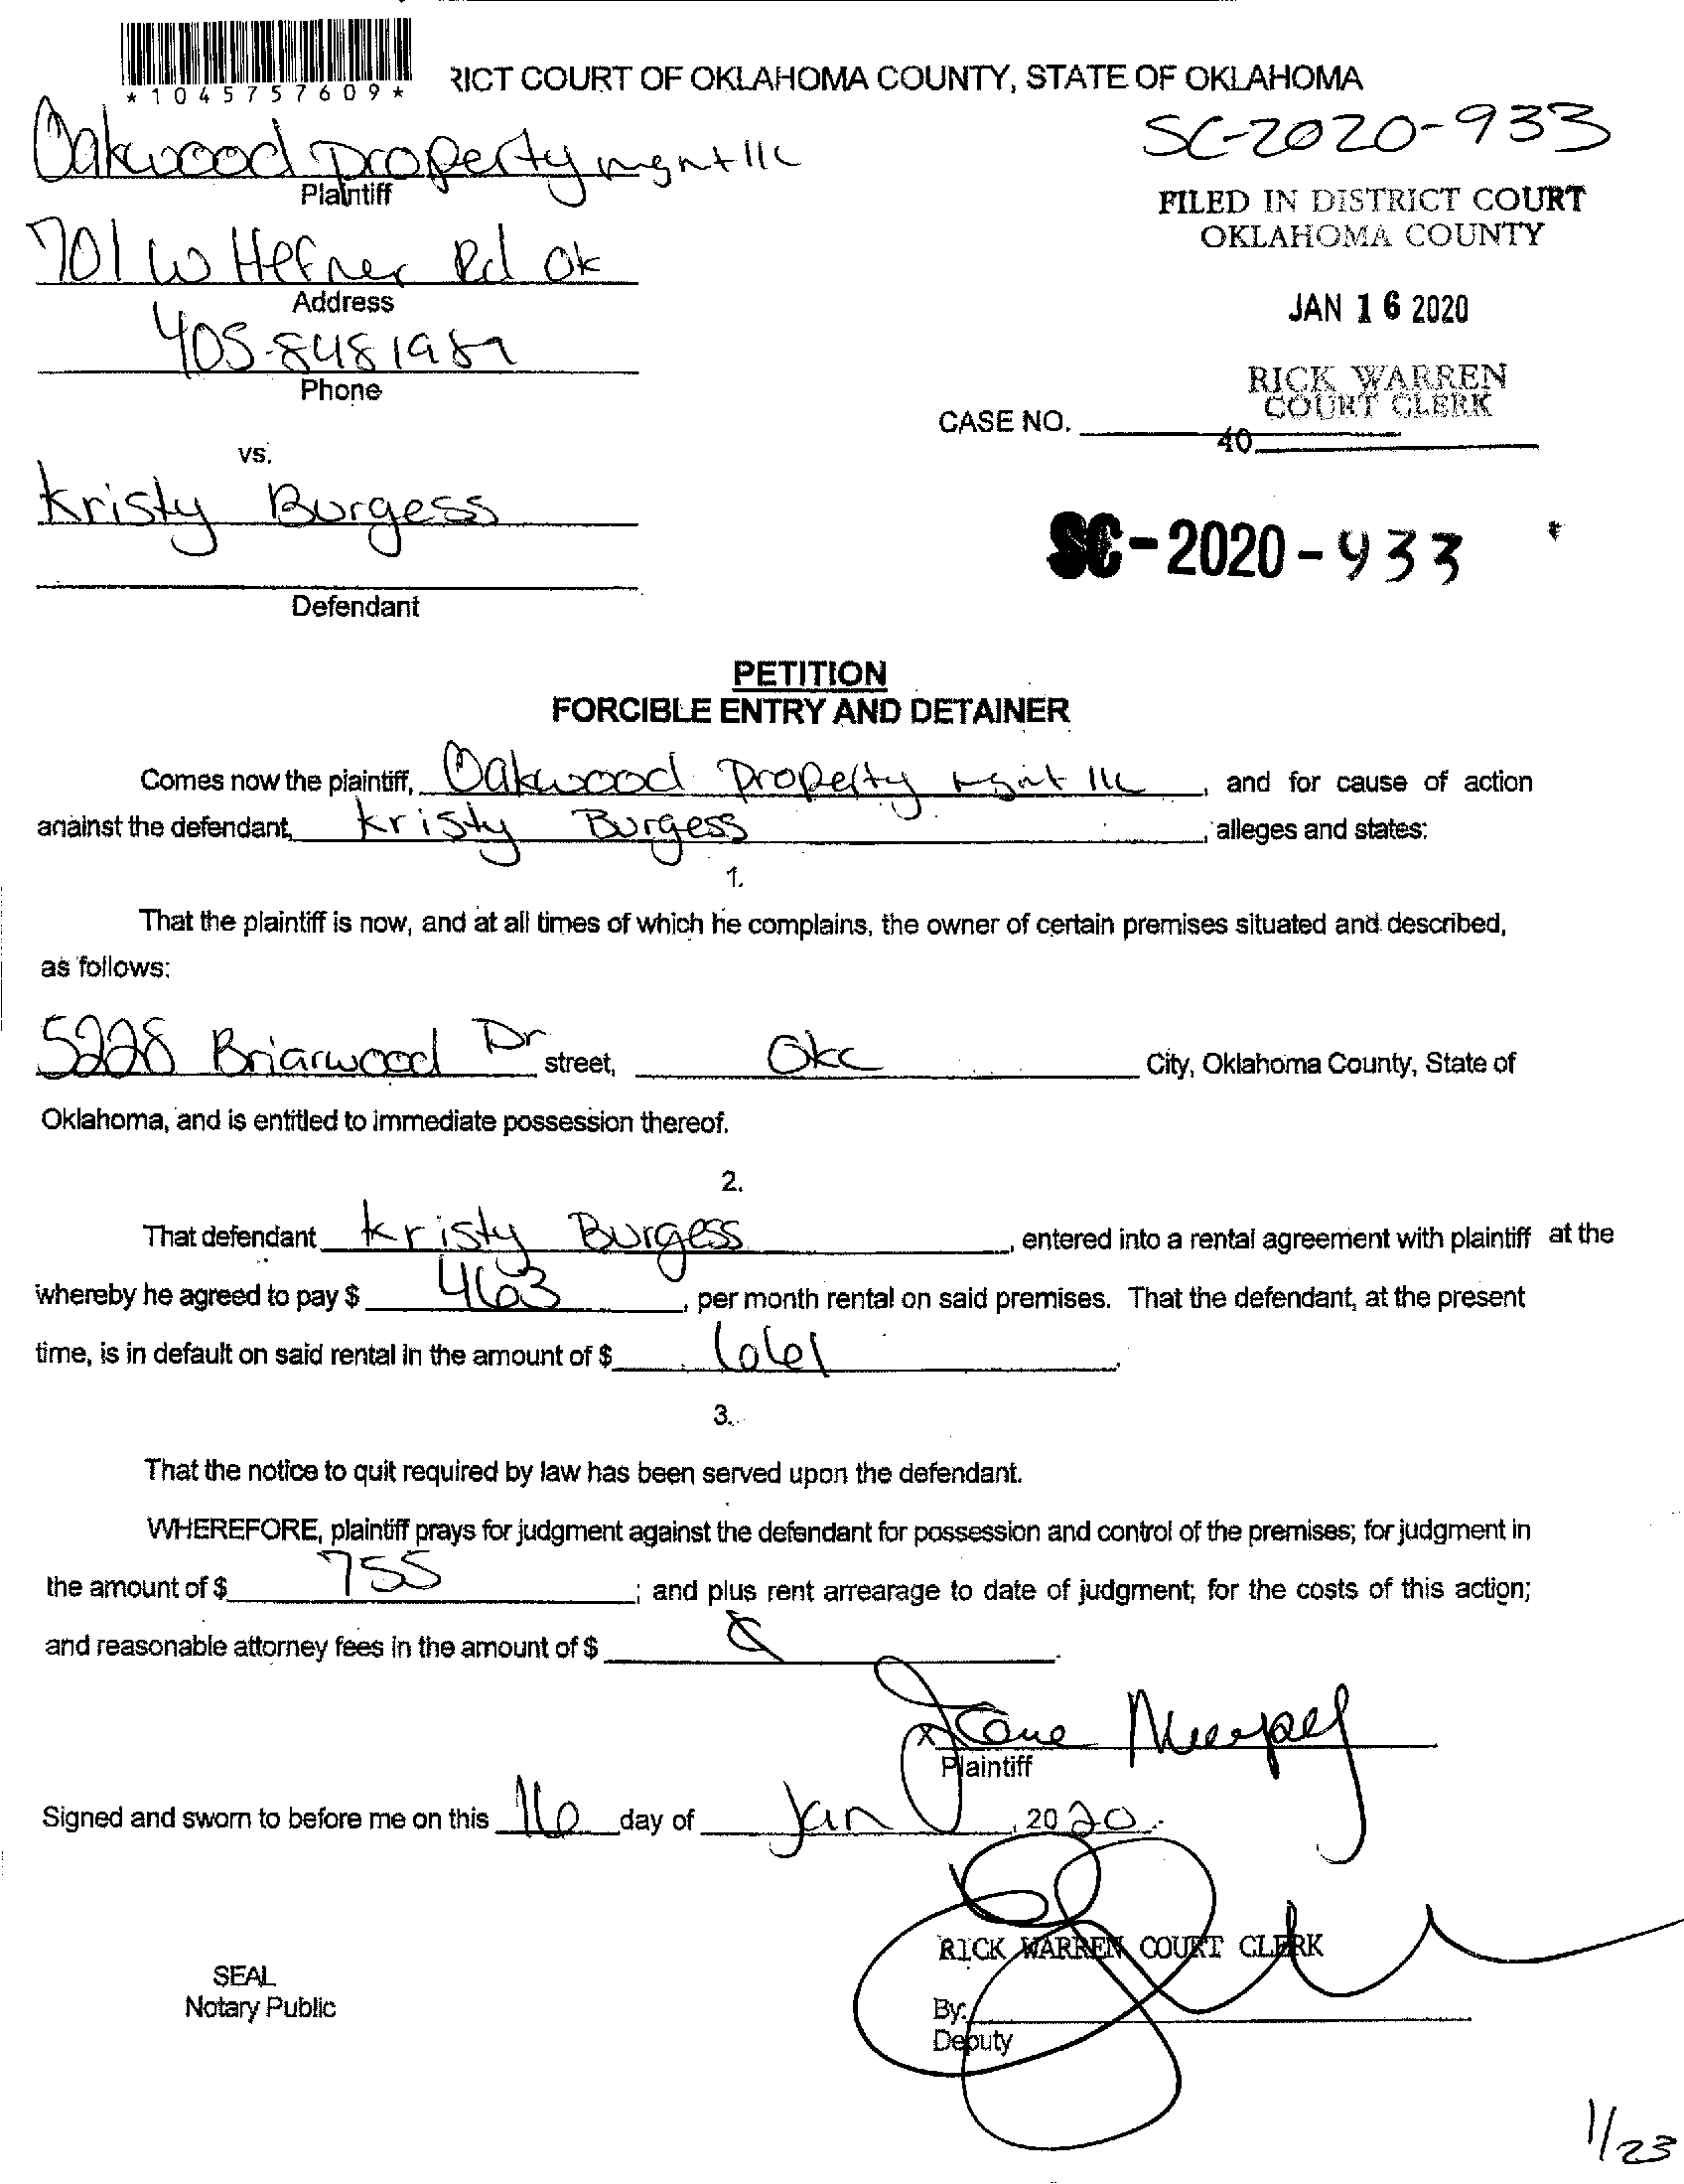 *1045757609*
RICT COURT OF OKLAHOMA COUNTY, STATE OF OKLAHOMA
SC-2020-933
Oakwood property mgnt llc
Plaintiff
FILED IN DISTRICT COURT
OKLAHOMA COUNTY
701 W Hefner Rd Ok
Address
JAN 16 2020
405-848 1989
Phone
RICK WARREN
COURT CLERK
CASE NO.
40
vs.
Kristy Burgess
SC-2020-933
Defendant
PETITION
FORCIBLE ENTRY AND DETAINER
Comes now the plaintiff, Oakwood Property mgnt llc, and for cause of action
against the defendant, Kristy Burgess, alleges and states:
1.
That the plaintiff is now, and at all times of which he complains, the owner of certain premises situated and described,
as follows:
5228 Briarwood Dr street, Okc City, Oklahoma County, State of
Oklahoma, and is entitled to immediate possession thereof.
2.
That defendant Kristy Burgess, entered into a rental agreement with plaintiff at the
whereby he agreed to pay $ 463, per month rental on said premises. That the defendant, at the present
time, is in default on said rental in the amount of $ 661.
3.
That the notice to quit required by law has been served upon the defendant.
WHEREFORE, plaintiff prays for judgment against the defendant for possession and control of the premises; for judgment in
the amount of $ 755; and plus rent arrearage to date of judgment; for the costs of this action;
and reasonable attorney fees in the amount of $
x
Plaintiff
Signed and sworn to before me on this 16 day of Jan, 2020.
RICK WARREN COURT CLERK
SEAL
Notary Public
By:
Deputy
1/23